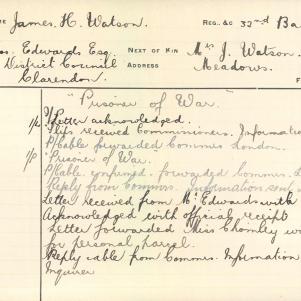 James H. Watson. REG. &C 32nd Ba
os. Edwards Esq. NEXT OF KIN Mrs J. Watson.
District Council ADDRESS Meadows.
Clarendon.
"Prisoner of War."
Letter acknowledged.
Slips received Commissioners. Informatio
P/Cable forwarded Commrs London.
"Prisoner of War.
P/Cable confirmed. forwarded Commrs. L
Reply from Commrs. Information sent
Letter received from Mr Edwards with
Acknowledged with official receipt
Letter forwarded Miss Chomley w
for personal parcel.
Reply cable from Commrs. Information
Inquirer